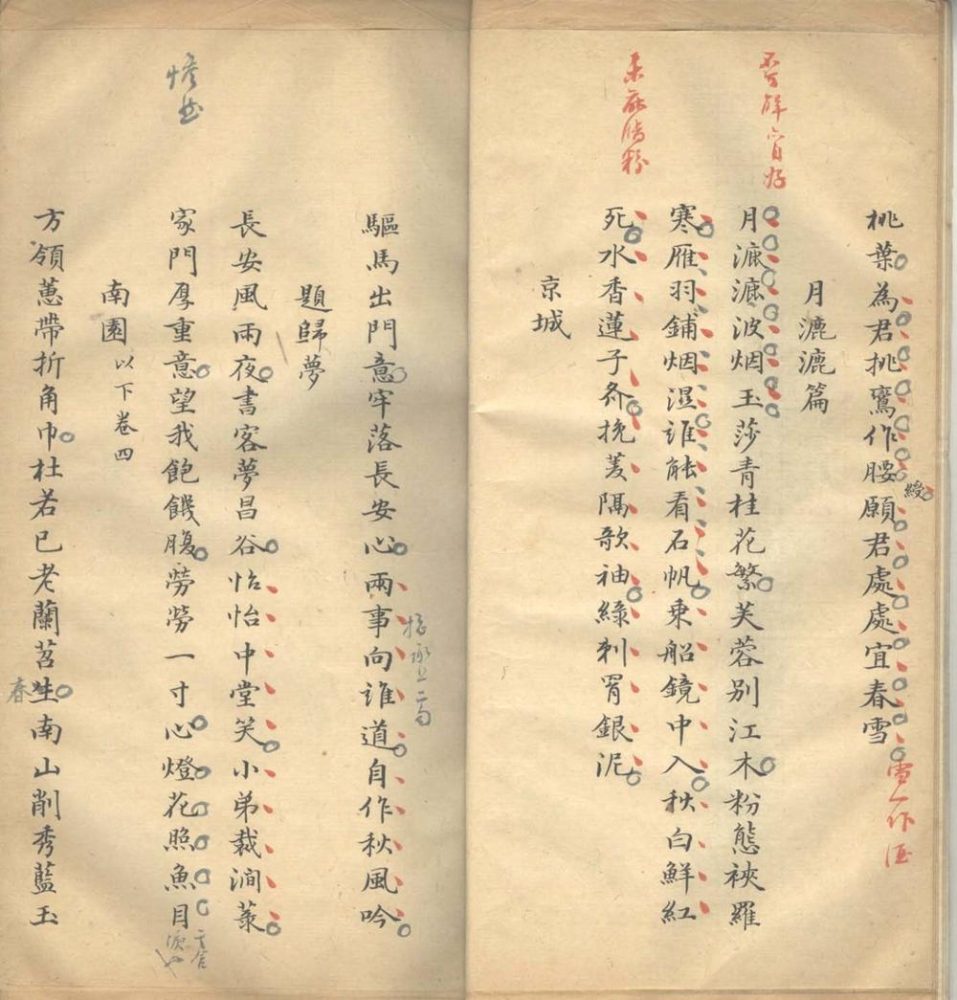 桃葉為君挑鸞作腰願君處處宜春雪
綬
雪一作酒
月漉漉篇
月漉漉波烟玉莎青桂花繁芙蓉別江木粉態裌羅
寒雁羽鋪烟濕誰能看石帆乗船鏡中入秋白鮮紅
死水香蓮子齐挽菱隔歌袖綠刺罥銀泥
京城
驅馬出門意牢落長安心兩事向誰道自作秋風吟
題歸夢
長安風雨夜書客夢昌谷怡怡中堂笑小弟裁澗菉
家門厚重意望我飽饑腹勞勞一寸心燈花照魚目
南園 以下卷四
方領蕙帶折角巾杜若已老蘭苕生南山削秀藍玉
春